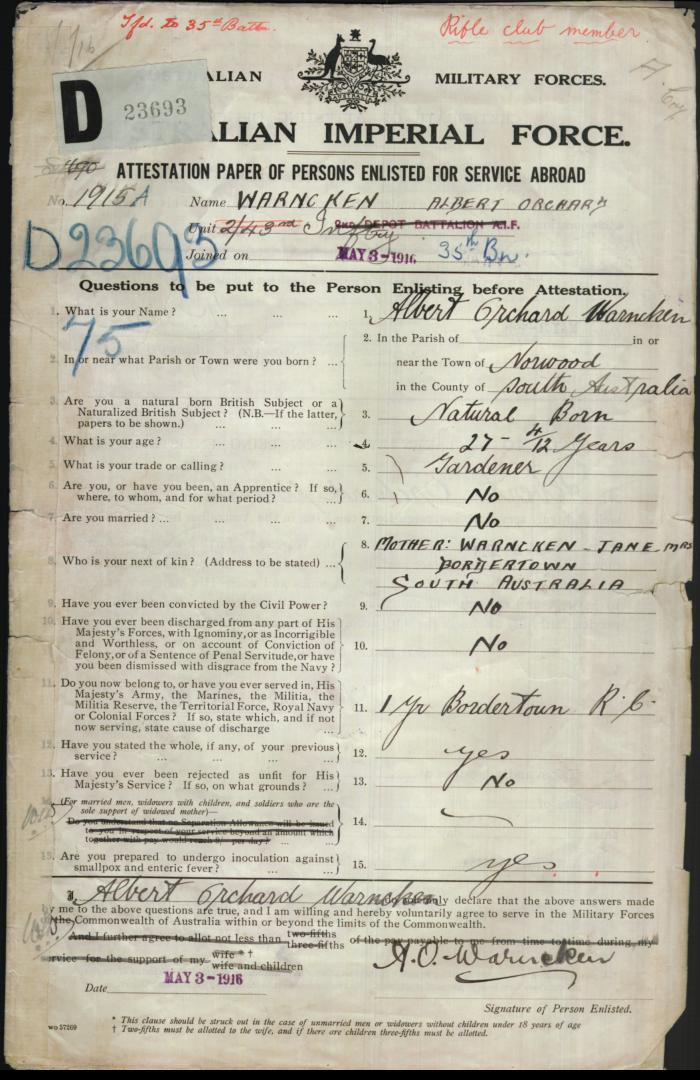 Tfd. to 35th Battn. Rifle club member
ALIAN MILITARY FORCES.
AUSTRALIA
D 23693
ALIAN IMPERIAL FORCE.
ATTESTATION PAPER OF PERSONS ENLISTED FOR SERVICE ABROAD
No. 1915 A Name WARNCKEN ALBERT ORCHARD
Unit 2/43rd Inf 2ND DEPOT BATTALION A.I.F.
D23693 Joined on MAY 3-1916 35th Bn.
Questions to be put to the Person Enlisting before Attestation.
75
1. What is your Name? ... ... ... 1. Albert Orchard Warncken
2. In or near what Parish or Town were you born? ... 2. In the Parish of in or
near the Town of Norwood
in the County of South Australia
3. Are you a natural born British Subject or a
Naturalized British Subject? (N.B.—If the latter,
papers to be shown.) ... ... 3. Natural Born
4. What is your age? ... ... ... 4. 27 - 4/12 Years
5. What is your trade or calling? ... ... 5. Gardener
6. Are you, or have you been, an Apprentice? If so,
where, to whom, and for what period? ... 6. No
7. Are you married? ... ... ... ... 7. No
8. Who is your next of kin? (Address to be stated) ... 8. MOTHER: WARNCKEN - JANE MRS
BORDERTOWN
SOUTH AUSTRALIA
9. Have you ever been convicted by the Civil Power? 9. No
10. Have you ever been discharged from any part of His
Majesty's Forces, with Ignominy, or as Incorrigible
and Worthless, or on account of Conviction of
Felony, or of a Sentence of Penal Servitude, or have
you been dismissed with disgrace from the Navy? 10. No
11. Do you now belong to, or have you ever served in, His
Majesty's Army, the Marines, the Militia, the
Militia Reserve, the Territorial Force, Royal Navy
or Colonial Forces? If so, state which, and if not
now serving, state cause of discharge 11. 1 Yr Bordertown R.C.
12. Have you stated the whole, if any, of your previous
service? ... ... ... ... 12. yes
13. Have you ever been rejected as unfit for His
Majesty's Service? If so, on what grounds? ... 13. No
(For married men, widowers with children, and soldiers who are the
sole support of widowed mother)—
Do you understand that no Separation Allowance will be issued
to you in respect of your service beyond an amount which
together with pay would reach 8/- per day? ... ... 14.
15. Are you prepared to undergo inoculation against
smallpox and enteric fever? ... ... 15. yes
I, Albert Orchard Warncken do solemnly declare that the above answers made
by me to the above questions are true, and I am willing and hereby voluntarily agree to serve in the Military Forces
of the Commonwealth of Australia within or beyond the limits of the Commonwealth.
And I further agree to allot not less than two-fifths three-fifths of the pay payable to me from time to time during my
service for the support of my wife * † wife and children
A.O. Warncken
Date MAY 3-1916
Signature of Person Enlisted.
* This clause should be struck out in the case of unmarried men or widowers without children under 18 years of age
wo 57269 † Two-fifths must be allotted to the wife, and if there are children three-fifths must be allotted.